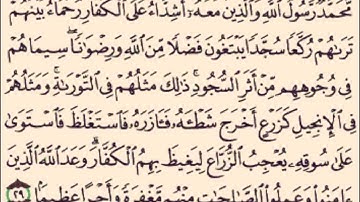 مُّحَمَّدٌ رَّسُولُ ٱللَّهِ وَٱلَّذِينَ مَعَهُۥٓ أَشِدَّآءُ عَلَى ٱلْكُفَّارِ رُحَمَآءُ بَيْنَهُمْ
تَرَىٰهُمْ رُكَّعًا سُجَّدًا يَبْتَغُونَ فَضْلًا مِّنَ ٱللَّهِ وَرِضْوَٰنًا ۖ سِيمَاهُمْ
فِى وُجُوهِهِم مِّنْ أَثَرِ ٱلسُّجُودِ ۚ ذَٰلِكَ مَثَلُهُمْ فِى ٱلتَّوْرَىٰةِ ۚ وَمَثَلُهُمْ
فِى ٱلْإِنجِيلِ كَزَرْعٍ أَخْرَجَ شَطْـَٔهُۥ فَـَٔازَرَهُۥ فَٱسْتَغْلَظَ فَٱسْتَوَىٰ
عَلَىٰ سُوقِهِۦ يُعْجِبُ ٱلزُّرَّاعَ لِيَغِيظَ بِهِمُ ٱلْكُفَّارَ ۗ وَعَدَ ٱللَّهُ ٱلَّذِينَ
ءَامَنُوا۟ وَعَمِلُوا۟ ٱلصَّٰلِحَٰتِ مِنْهُم مَّغْفِرَةً وَأَجْرًا عَظِيمًۢا ٢٩